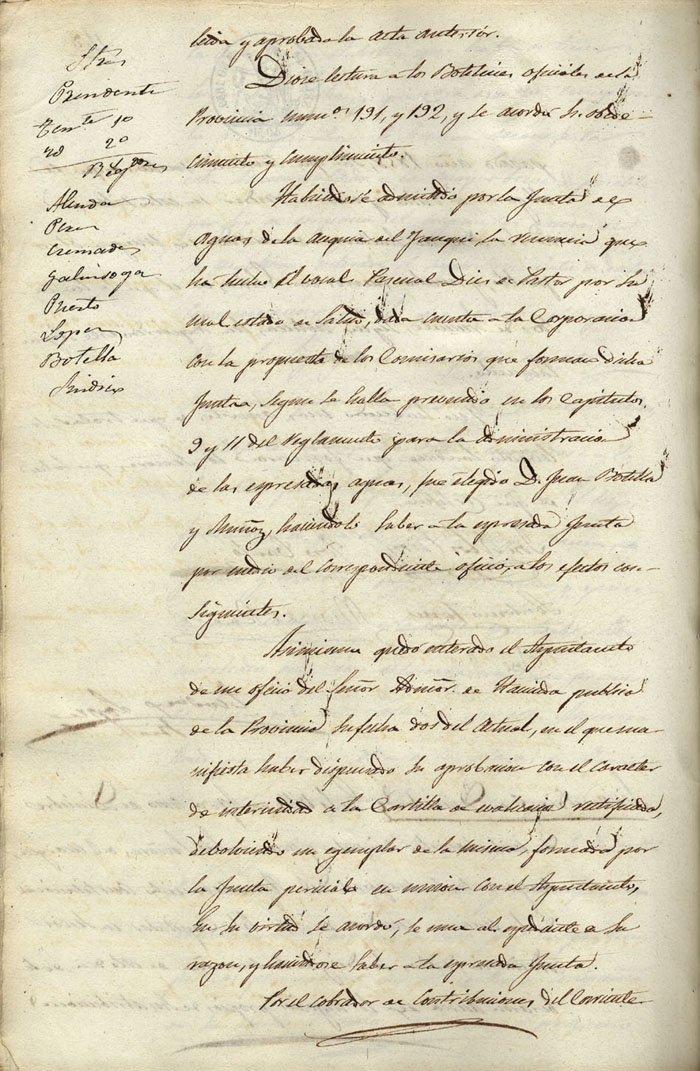 Stres
Presidente
Tente 1º
id 2º
Regres
Alenda
Perez
Cremades
Galinsoga
Puerto
Lopez
Botella
Sindico
leida y aprobada la acta anterior.
Diose lectura a los Boletines oficiales de la
Provincia numos 191, y 192, y se acordó su obde-
cimiento y cumplimiento.
Habiendose admitido por la Junta de
Aguas de la acequia del la renuncia que
ha hecho el vocal Pascual Dies de Pastor por su
mal estado de salud, dada cuenta a la Corporacion
con la propuesta de los Comisarios que forman dicha
Junta, segun se halla prevenido en los Capitulos
9 y 11 del Reglamento para la administracion
de las espresadas aguas, fue elegido D. Juan Botella
y Muñoz, haciendolo saber a la espresada Junta
por medio del correspondiente oficio, a los efectos con-
siguientes.
Asimismo quedo enterado el Ayuntamto
de un oficio del Señor Admor. de Hacienda publica
de la Provincia su fecha dos del Actual, en el que ma-
nifiesta haber dispensado su aprobacion con el caracter
de interinidad a la Cartilla de evaluacion rectificada,
debolviendo un ejemplar de la misma, formada por
la Junta pericial en union con el Ayuntamto,
En su virtud se acordó, se una al espediente de su
razon, y haciendose saber a la espresada Junta.
Por el Cobrador de Contribuciones del Corriente